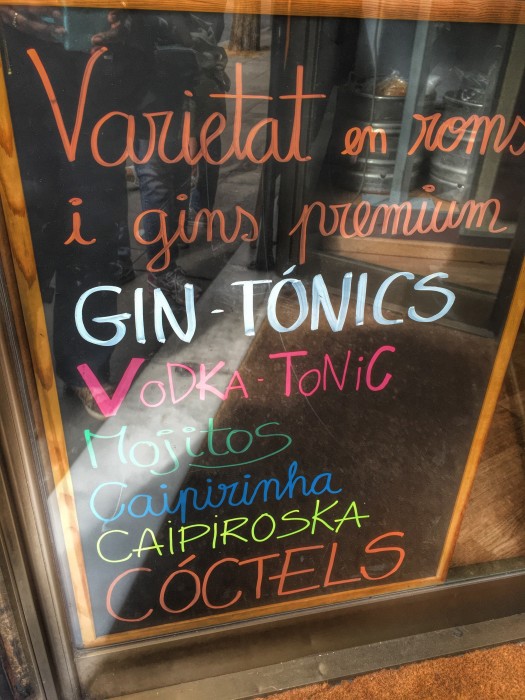 Varietat en roms
i gins premium
GIN-TÓNICS
VODKA-TONIC
Mojitos
Caipirinha
CAIPIROSKA
CÓCTELS